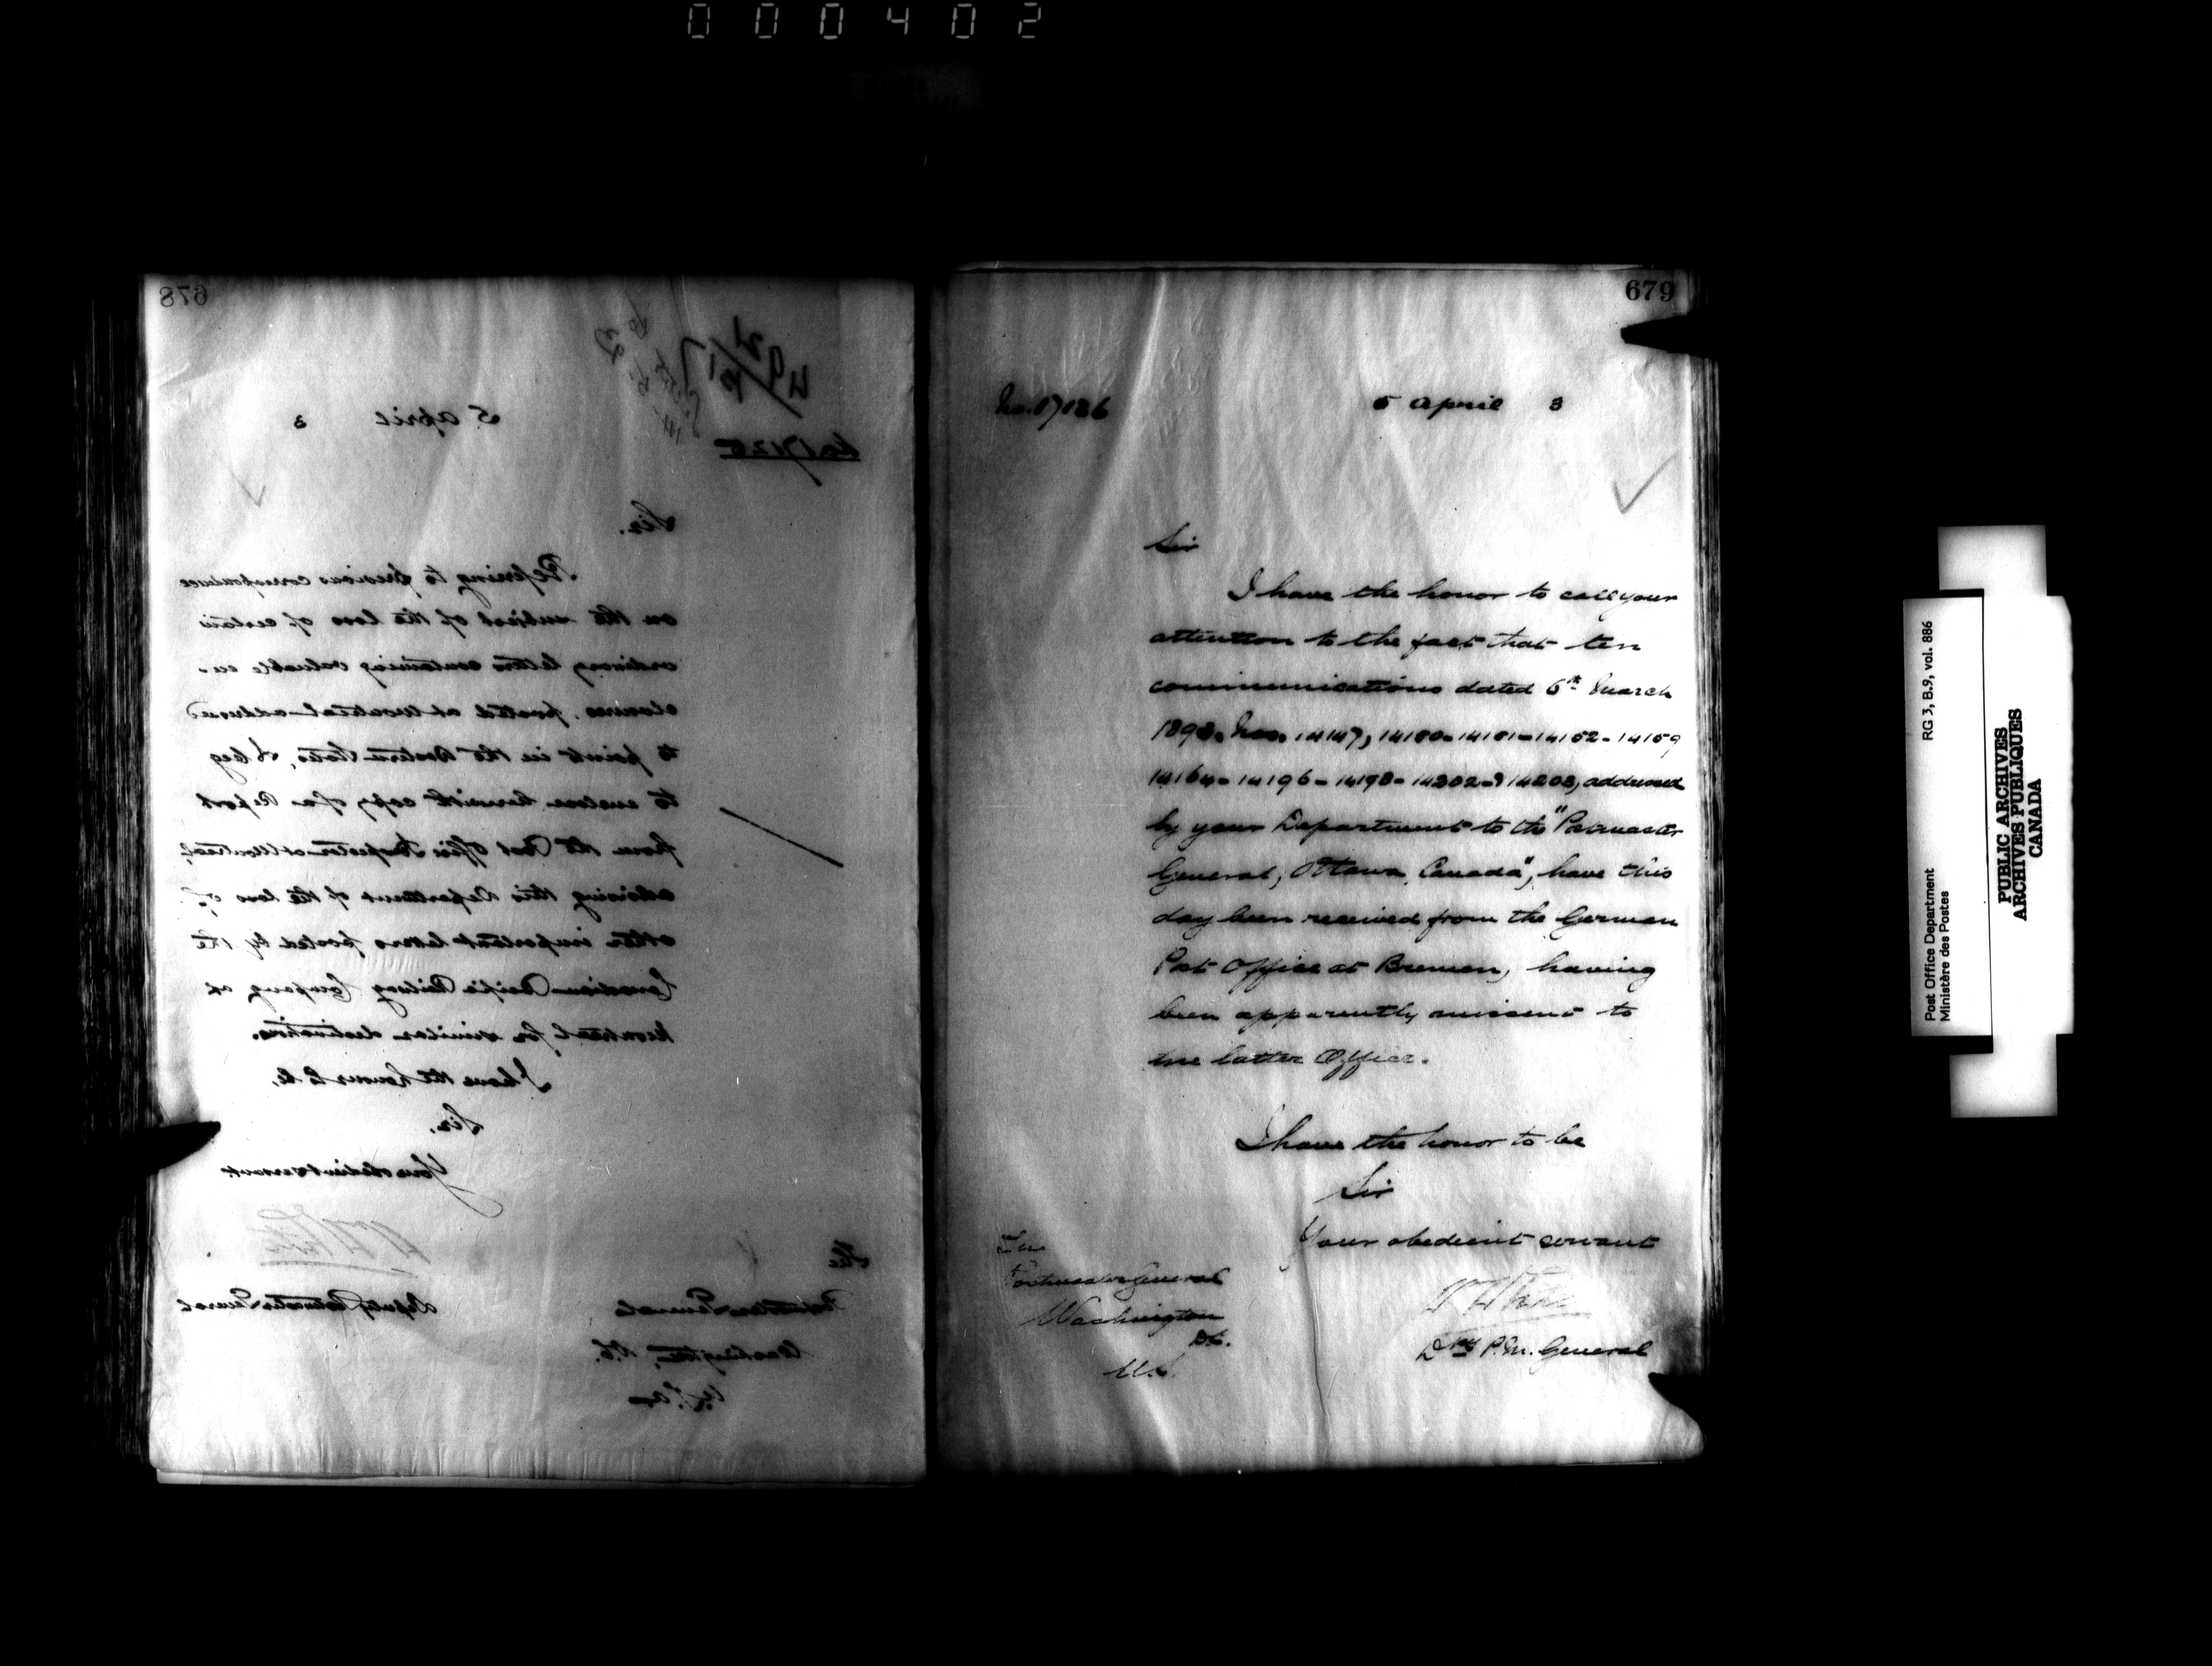 000402
678
5 April 3
No 17125
Sir.
Referring to previous correspondence
on the subject of the loss of certain
ordinary letters containing valuable en-
closures, posted at Montreal addressed
to points in the Western States, I beg
to enclose herewith copy of a Report
from the Post Office Inspector at Montreal,
advising this Department of the loss of
other important letters posted by the
Canadian Pacific Railway Company at
Montreal for similar destinations.
I have the honour to be,
Sir,
Your obedient servant.
Deputy Postmaster General
The
Postmaster General
Washington, D.C.
U.S.a
679
No. 17126
5 April 3
Sir
I have the honor to call your
attention to the fact that ten
communications dated 6th March
1893. Nos. 14147, 14152-14159
14164-14196-14198-14202-& addressed
by your Department to the "Postmaster
General, Ottawa, Canada", have this
day been received from the German
Post Office at Bremen, having
been apparently missent to
the latter Office.
I have the honor to be
Sir
Your obedient servant
Dpy P.M. General
The
Postmaster General
Washington
D.C.
U.S.
Post Office Department
Ministère des Postes
RG 3, B.9, vol. 886
PUBLIC ARCHIVES
ARCHIVES PUBLIQUES
CANADA